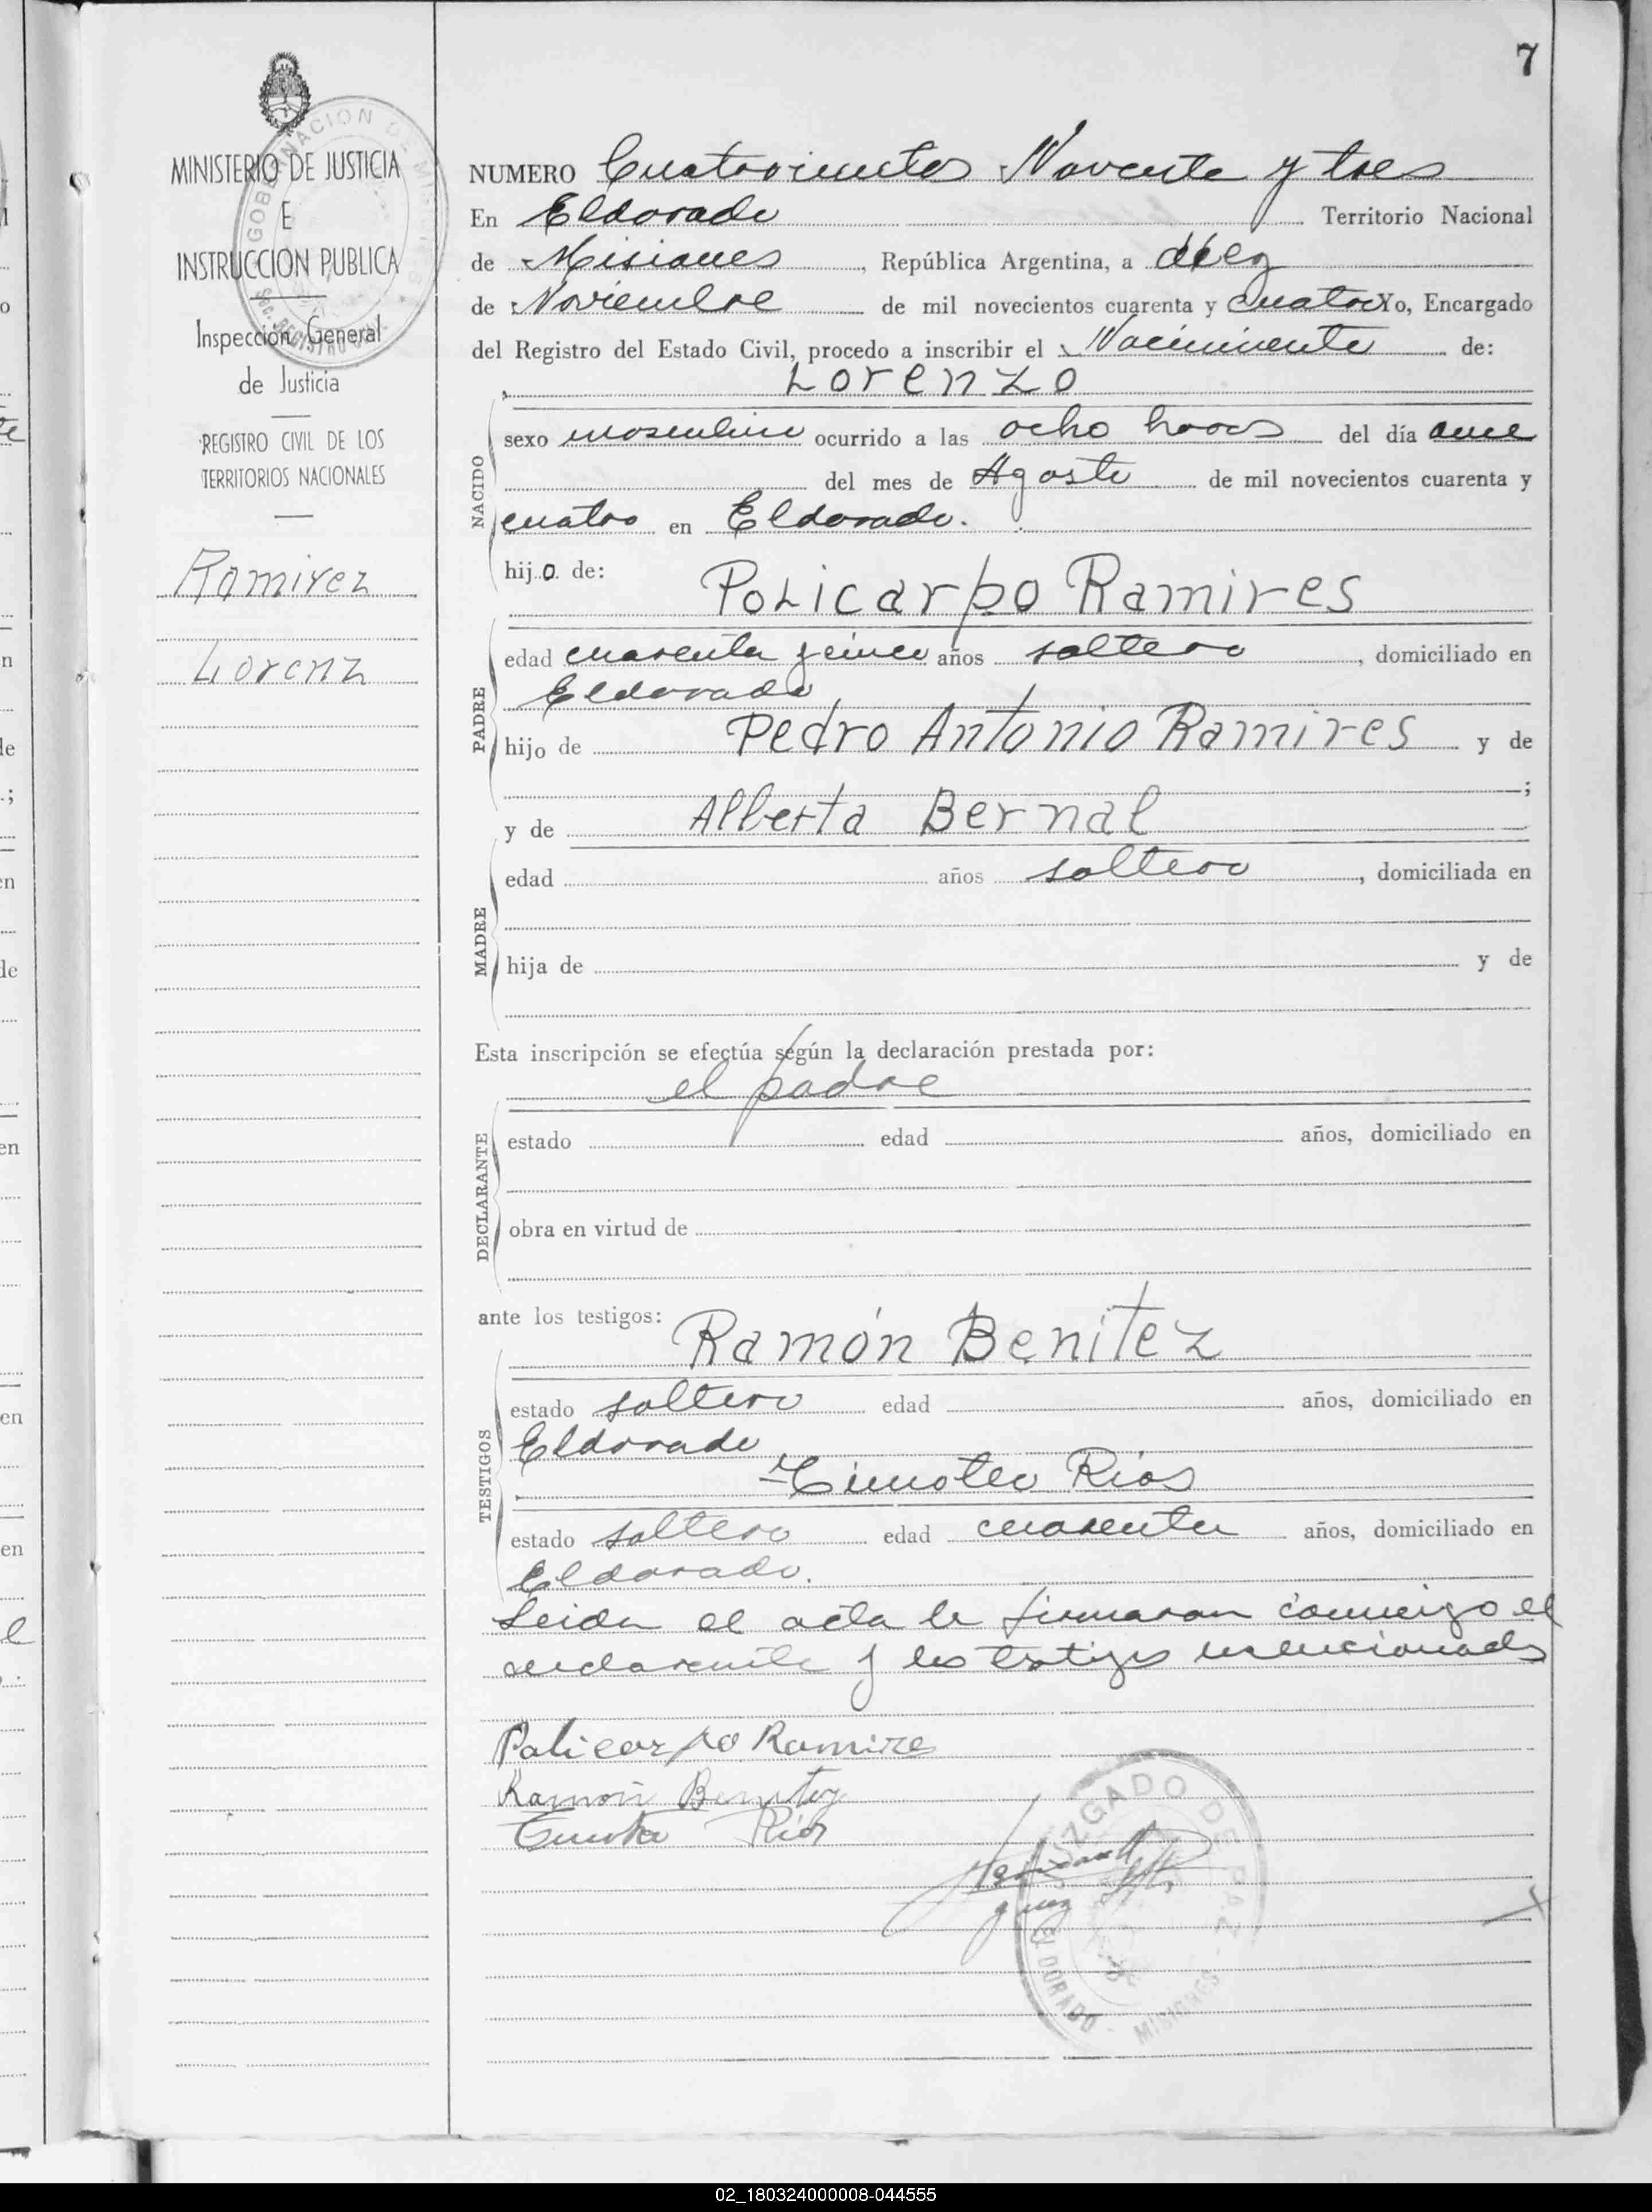 7
MINISTERIO DE JUSTICIA
E
INSTRUCCION PUBLICA
Inspección General
de Justicia
REGISTRO CIVIL DE LOS
TERRITORIOS NACIONALES
Ramirez
Lorenz
NUMERO Cuatrocientos Noventa y tres
En Eldorado Territorio Nacional
de Misiones, República Argentina, a diez
de Noviembre de mil novecientos cuarenta y cuatro Yo, Encargado
del Registro del Estado Civil, procedo a inscribir el Nacimiento de:
Lorenzo
NACIDO
sexo masculino ocurrido a las ocho horas del día once
del mes de Agosto de mil novecientos cuarenta y
cuatro en Eldorado.
hijo de:
Policarpo Ramires
PADRE
edad cuarenta y cinco años soltero, domiciliado en
Eldorado
hijo de Pedro Antonio Ramires y de
;
y de Alberta Bernal
MADRE
edad años soltero, domiciliada en
hija de y de
Esta inscripción se efectúa según la declaración prestada por:
el padre
DECLARANTE
estado edad años, domiciliado en
obra en virtud de
ante los testigos:
Ramón Benitez
TESTIGOS
estado soltero edad años, domiciliado en
Eldorado
Timoteo Rios
estado soltero edad cuarenta años, domiciliado en
Eldorado.
Leida el acta la firmaron conmigo el
declarante y los testigos mencionados
Policarpo Ramires
Ramón Benitez
Rios
JUZGADO DE PAZ
ELDORADO - MISIONES
02_180324000008-044555